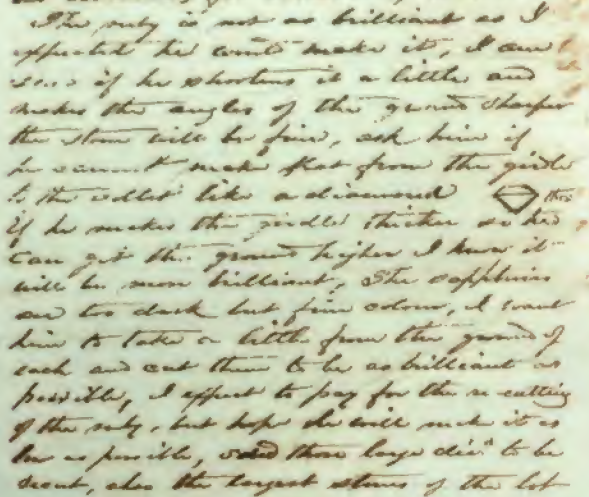 The ruby is not as brilliant as I
expected he would make it, I am
sure if he shortens it a little and
makes the angles of the ground sharper
the stone will be fine, ask him if
he cannot make that from the girdle
to the collet like a diamond thus
if he makes the girdle thicker so he
can get the ground higher I know it
will be more brilliant, The sapphires
are too dark but fine colour, I want
him to take a little from the ground of
each and cut them to be as brilliant as
possible, I expect to pay for the re-cutting
of the ruby, but hope he will make it as
low as possible, those large to be
the largest stones of the lot